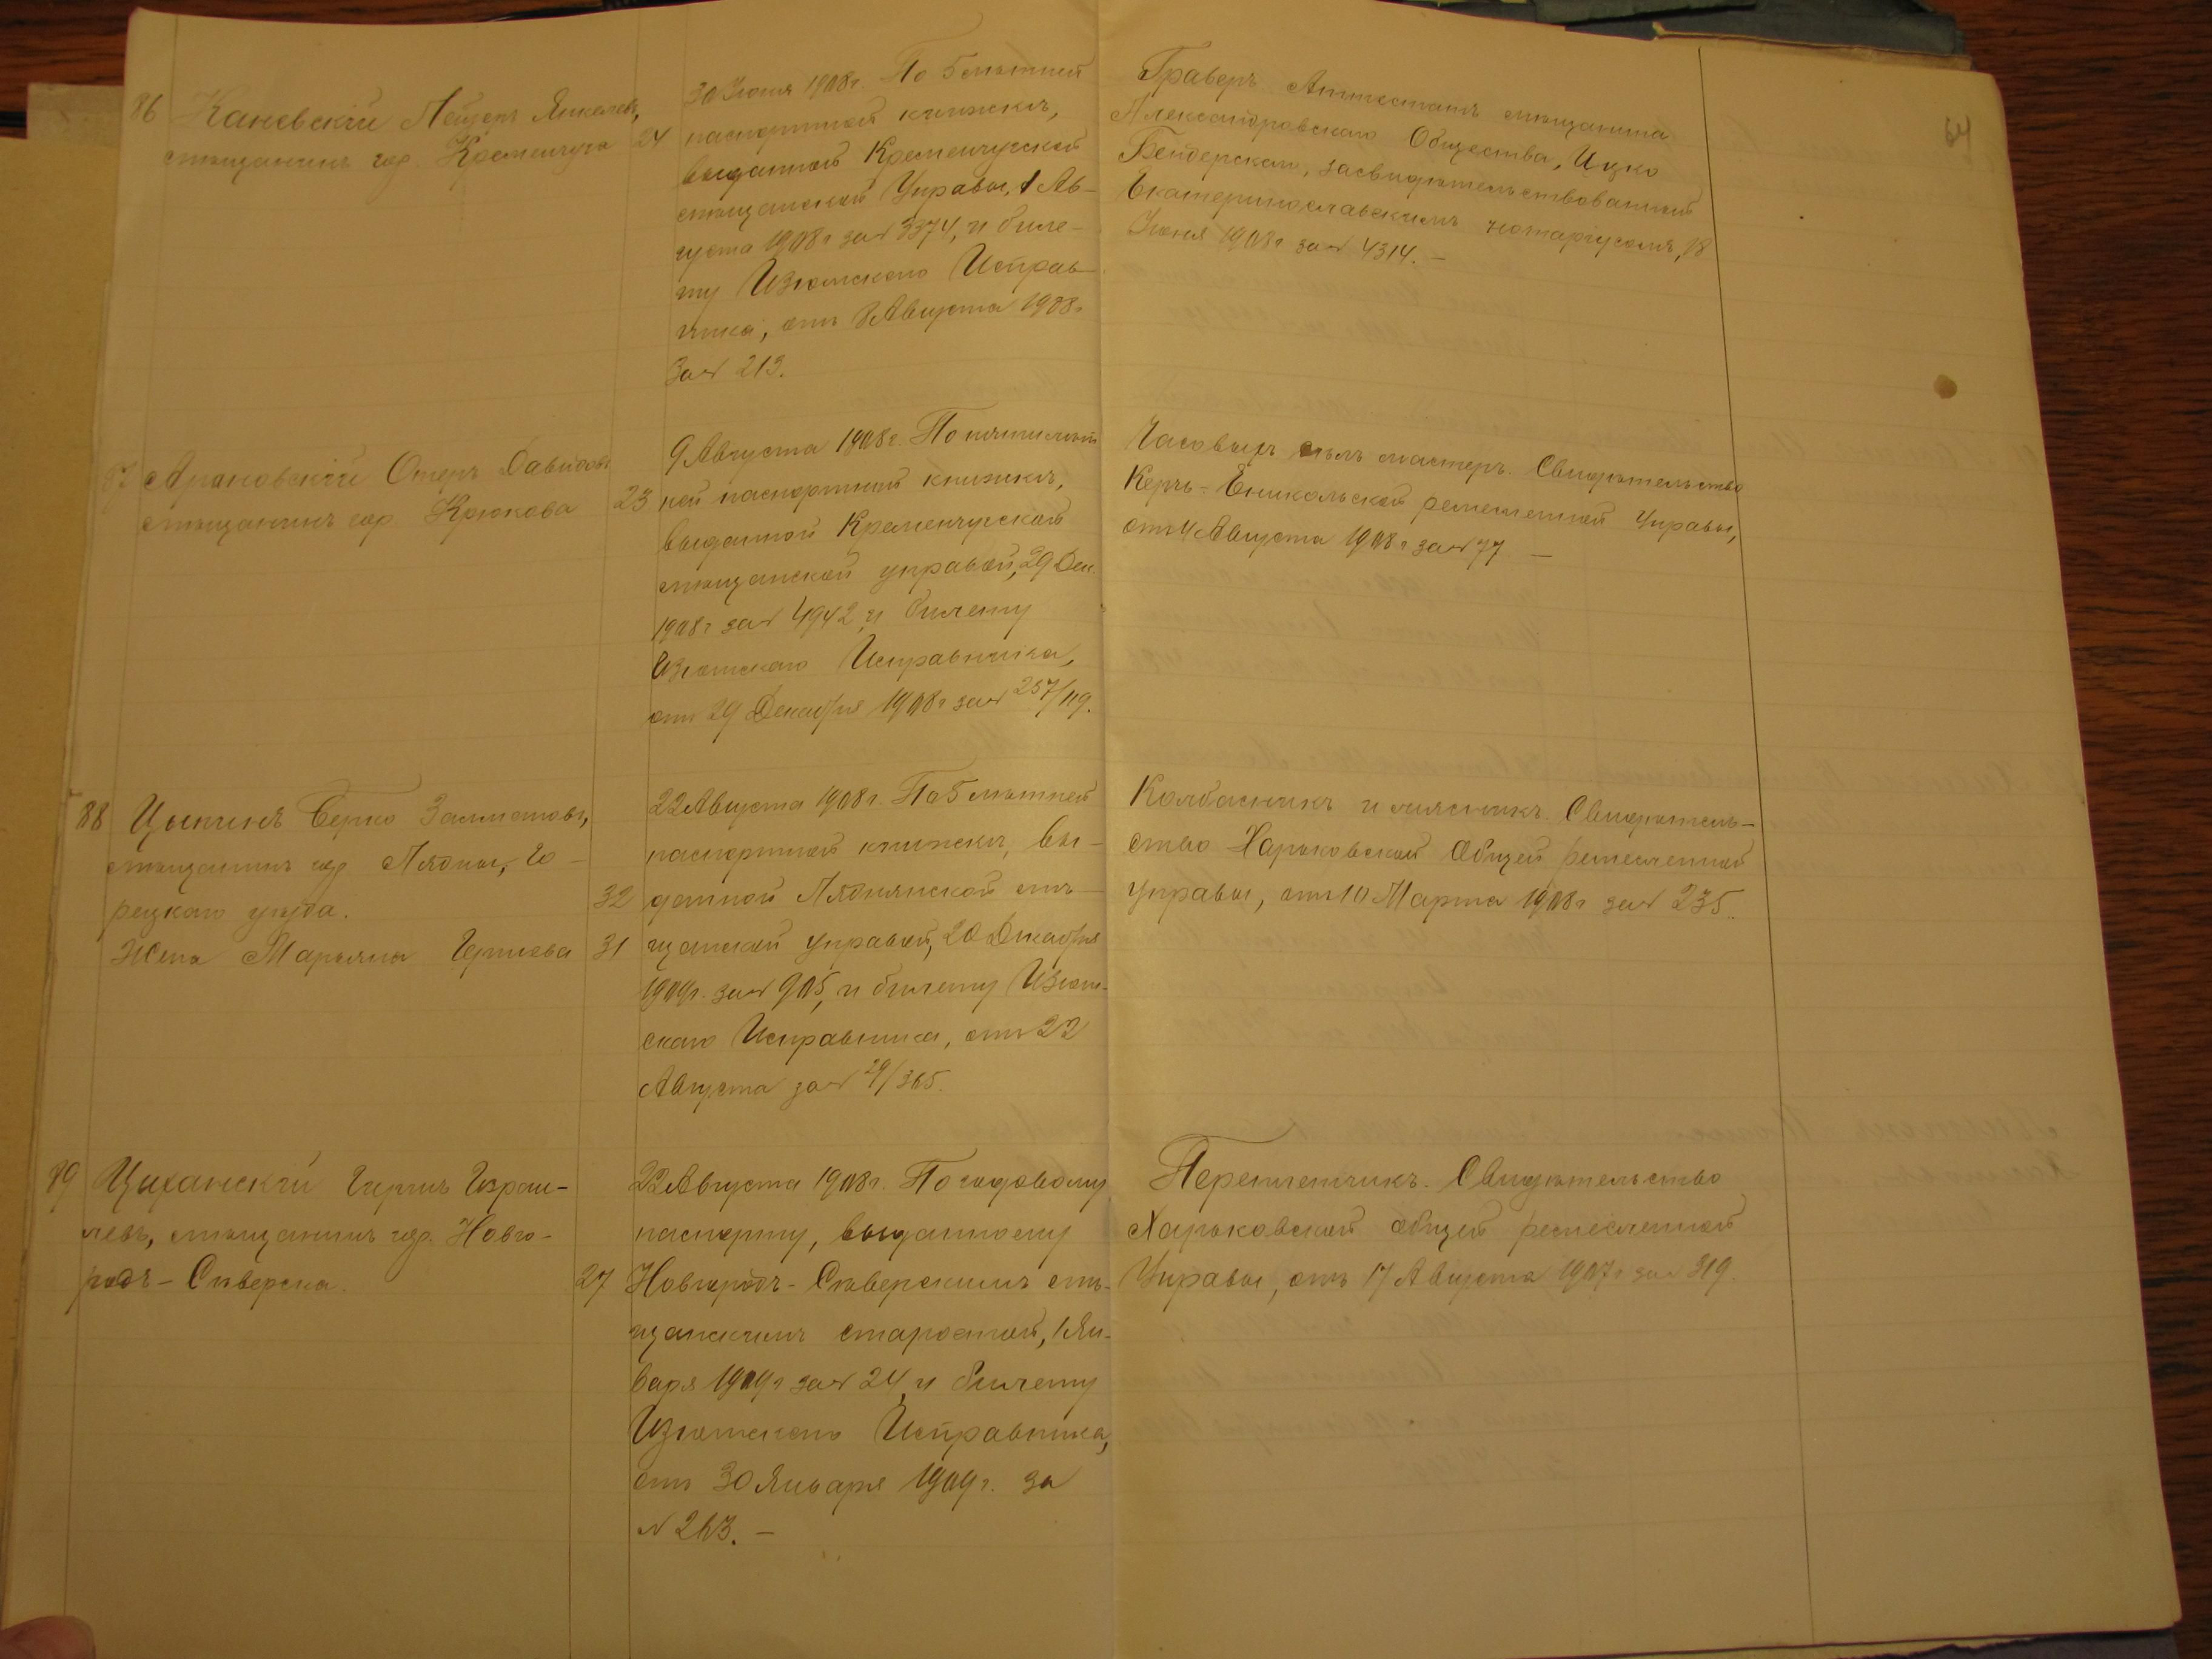 64
86
Каневскій Лейзеръ Янкелевъ,
мѣщанинъ гор. Кременчуга
24
30 Іюня 1908г. По 5 лѣтней
паспортной книжкѣ,
выданной Кременчугской
мѣщанской Управы, 1 Ав-
густа 1908г за № 3374, и биле-
ту Изюмскаго Исправ-
ника, отъ 8 Августа 1908г
за № 213.
Граверъ. Аттестатъ мѣщанина
Александровскаго Общества, Ицко
Бендерскаго, засвидѣтельствованный
Екатеринославскимъ нотаріусомъ, 18
Іюня 1908г за № 4314. —
87
Ароновскій Давидовъ
мѣщанинъ гор. Крюкова
23
9 Августа 1908г. По пятилѣт
ней паспортной книжкѣ,
выданной Кременчугской
мѣщанской управой, 29 Дек.
1908г за № 4942, и билету
Изюмскаго Исправника,
отъ 29 Декабря 1908г за № 257/119.
Часовыхъ дѣлъ мастеръ. Свидѣтельство
Керчь-Еникольской ремесленной Управы,
отъ 4 Августа 1908г за № 77 —
88
Цыпинъ Берко Залмановъ,
мѣщанинъ гор Лядны, Го-
рецкаго уѣзда.
32
Жена Марьяна
31
22 Августа 1908г. По 5 лѣтней
паспортной книжкѣ, вы-
данной Ляднянской мѣ-
щанской управой, 20 Декабря
1909г. за № 905, и билету Изюм-
скаго Исправника, отъ 22
Августа за № 29/365.
Колбасникъ и мясникъ. Свидѣтель-
ство Харьковской Общей ремесленной
управы, отъ 10 Марта 1908г за № 235.
89
Цыханскій Израи-
левъ, мѣщанинъ гор. Новго-
родъ-Сѣверска.
27
22 Августа 1908г. По годовому
паспорту, выданному
Новгородъ-Сѣверскимъ мѣ-
щанскимъ старостой, 1 Ян-
варя 1909г за № 24, и билету
Изюмскаго Исправника,
отъ 30 Января 1909г. за
№ 263. —
Переплетчикъ. Свидѣтельство
Харьковской общей ремесленной
Управы, отъ 17 Августа 1907г за № 319.